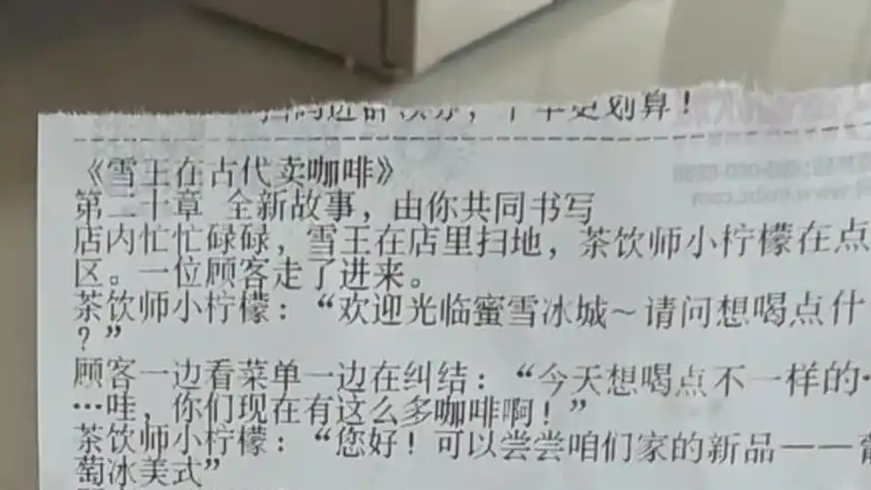 划算！
《雪王在古代卖咖啡》
第二十章 全新故事，由你共同书写
店内忙忙碌碌，雪王在店里扫地，茶饮师小柠檬在点
区。一位顾客走了进来。
茶饮师小柠檬：“欢迎光临蜜雪冰城～请问想喝点什
？”
顾客一边看菜单一边在纠结：“今天想喝点不一样的…
…哇，你们现在有这么多咖啡啊！”
茶饮师小柠檬：“您好！可以尝尝咱们家的新品——葡
萄冰美式”